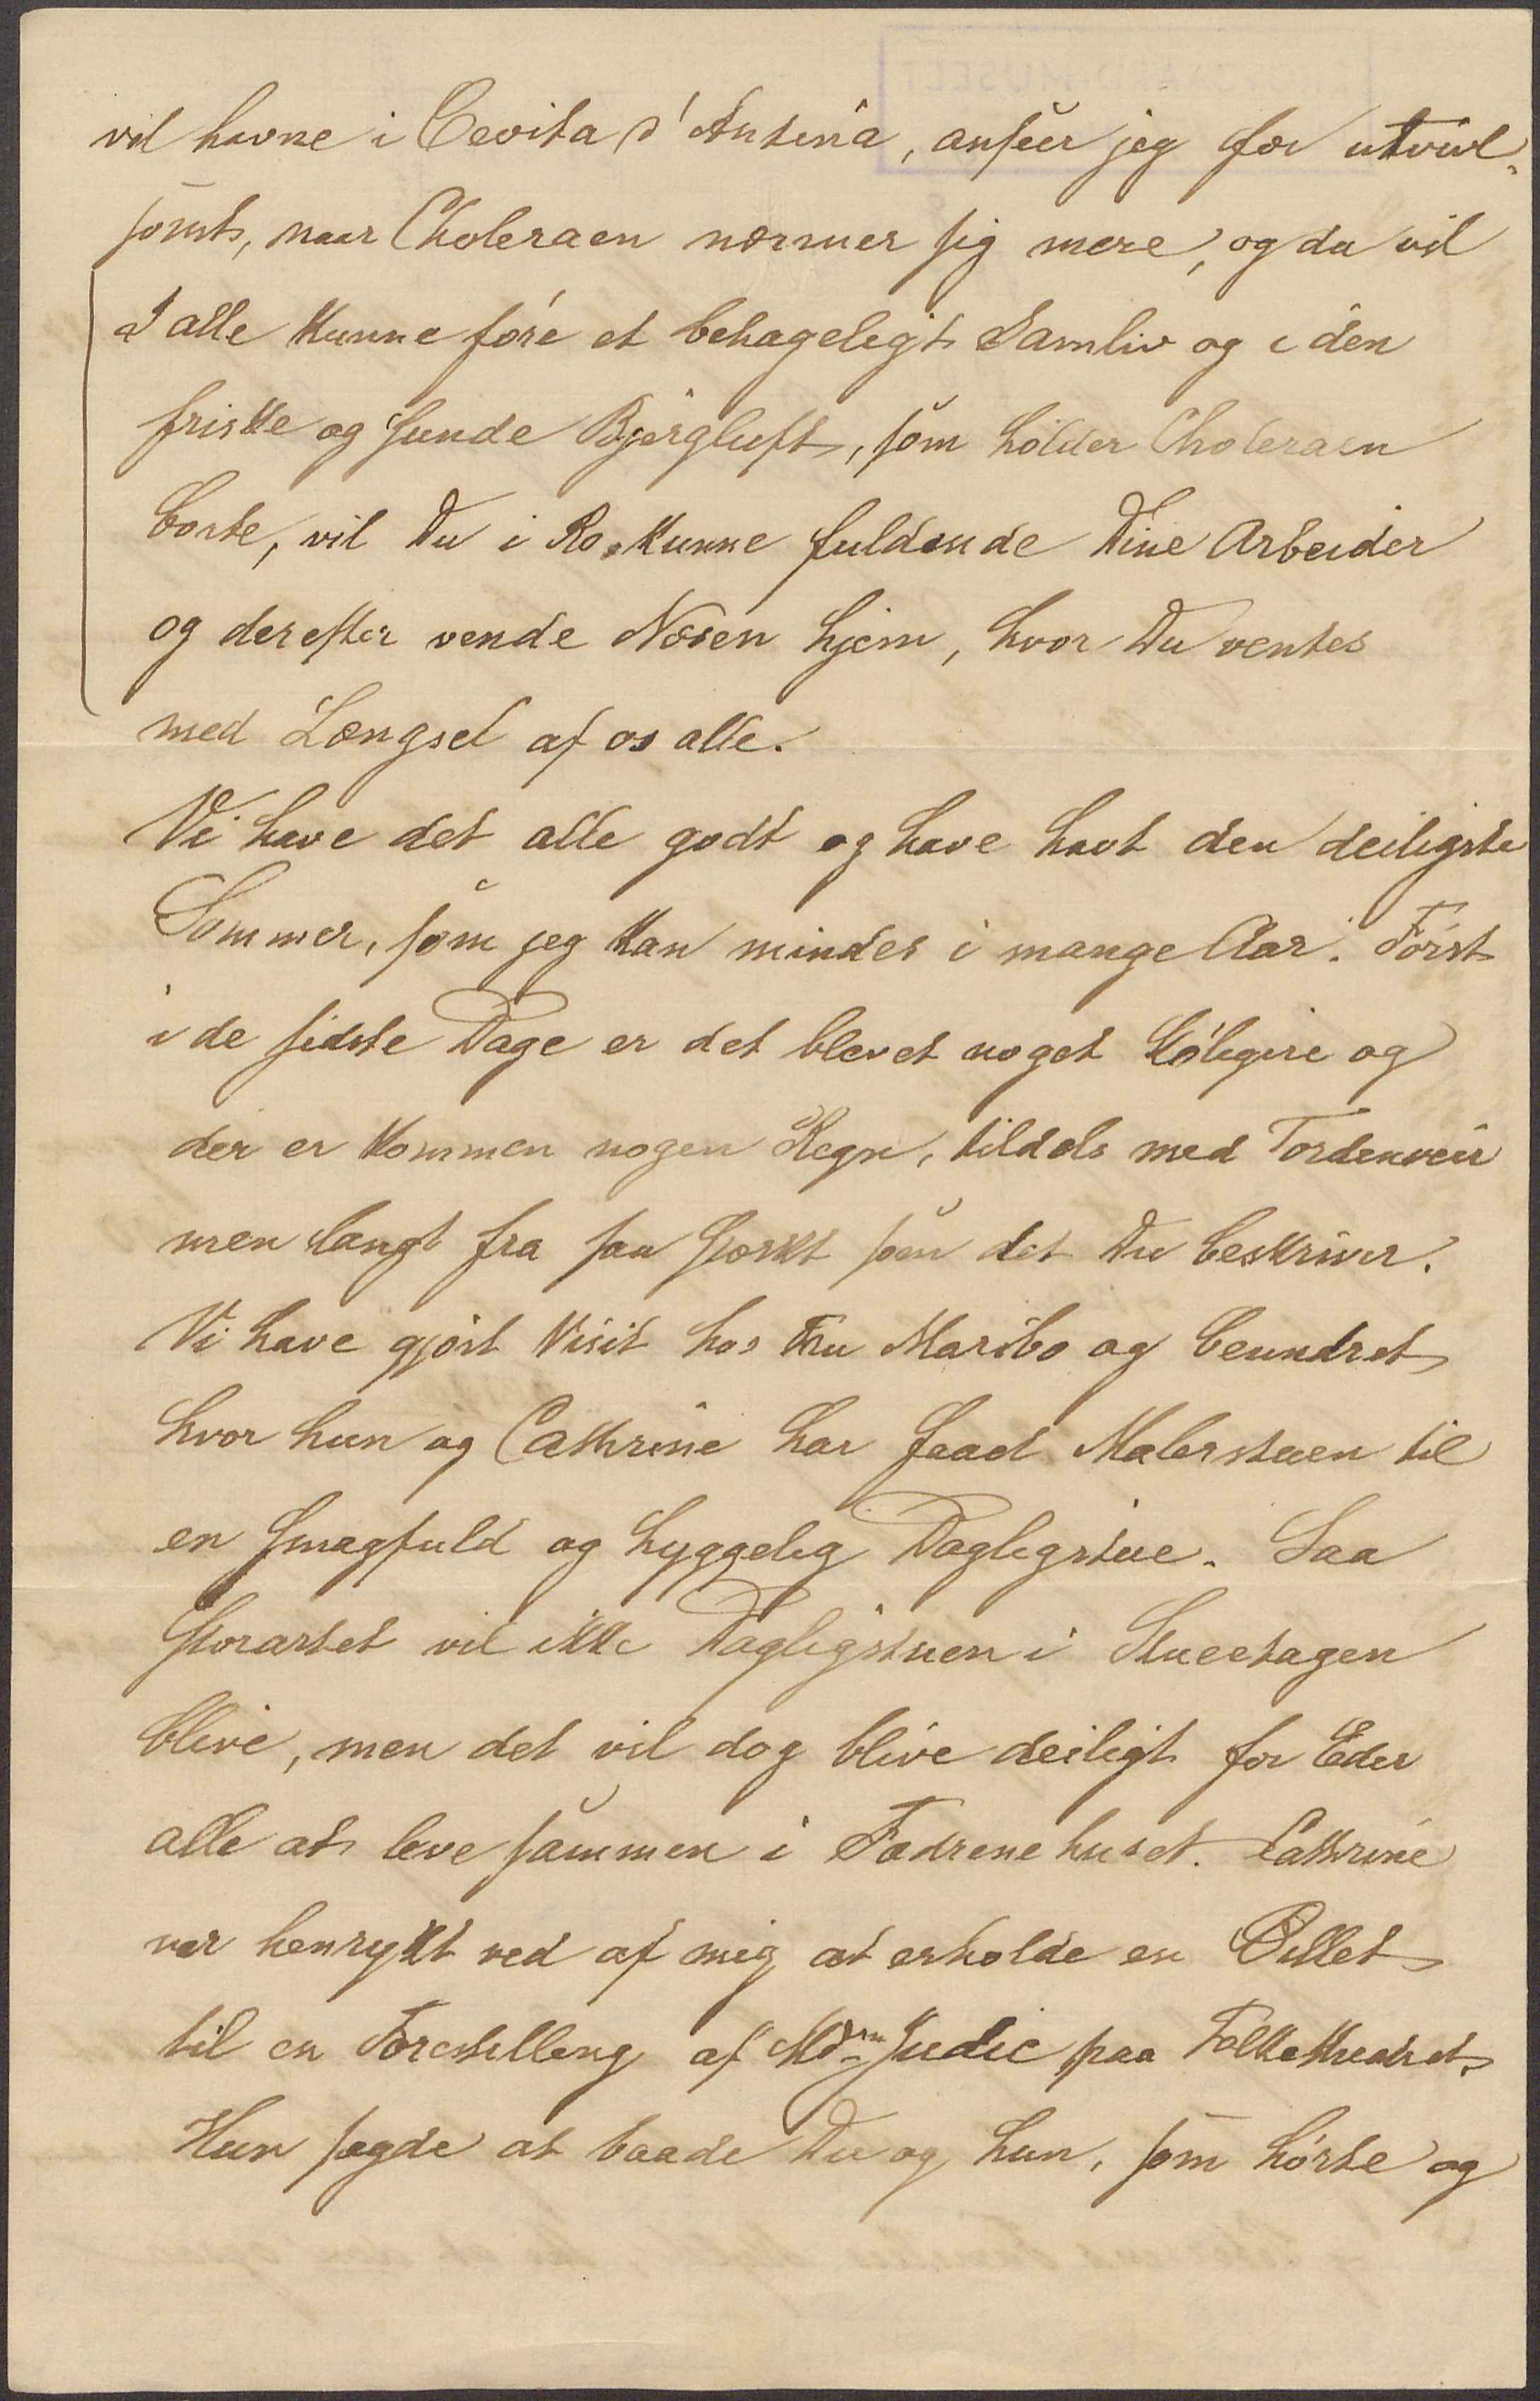 vil havne i Cevita d'Antina, anseer jeg for utvivl-
somt, naar Choleraen nærmer sig mere, og da vil
I alle kunne føre et behageligt Samliv og i den
friske og sunde Bjergluft, som holder Choleraen
borte, vil Du i Ro kunne fuldende Dine Arbeider
og derefter vende Næsen hjem, hvor Du ventes
med Længsel af os alle.
Vi have det alle godt og have havt den deiligste
Sommer, som jeg kan mindes i mange Aar. Først
i de sidste Dage er det blevet noget køligere og
der er kommen nogen Regn, tildels med Tordenveir
men langt fra saa stærkt som det Du beskriver.
Vi have gjort Visit hos Fru Maribo og beundret
hvor hun og Cathrine har faaet Malerstuen til
en smagfuld og hyggelig Dagligstue. Saa
storartet vil ikke Dagligstuen i Stueetagen
blive, men det vil dog blive deiligt for Eder
alle at leve sammen i Fædrenehuset. Cathrine
var henrykt ved af mig at erholde en Billet
til en Forestilling af Mdm Judic paa Folketheatret.
Hun sagde at baade Du og hun, som hørte og